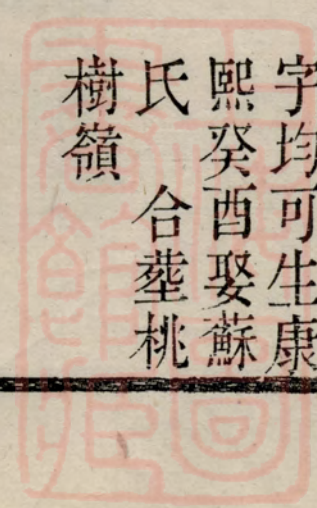 字均可生康
熙癸酉娶蘇
氏　合塟桃
樹嶺